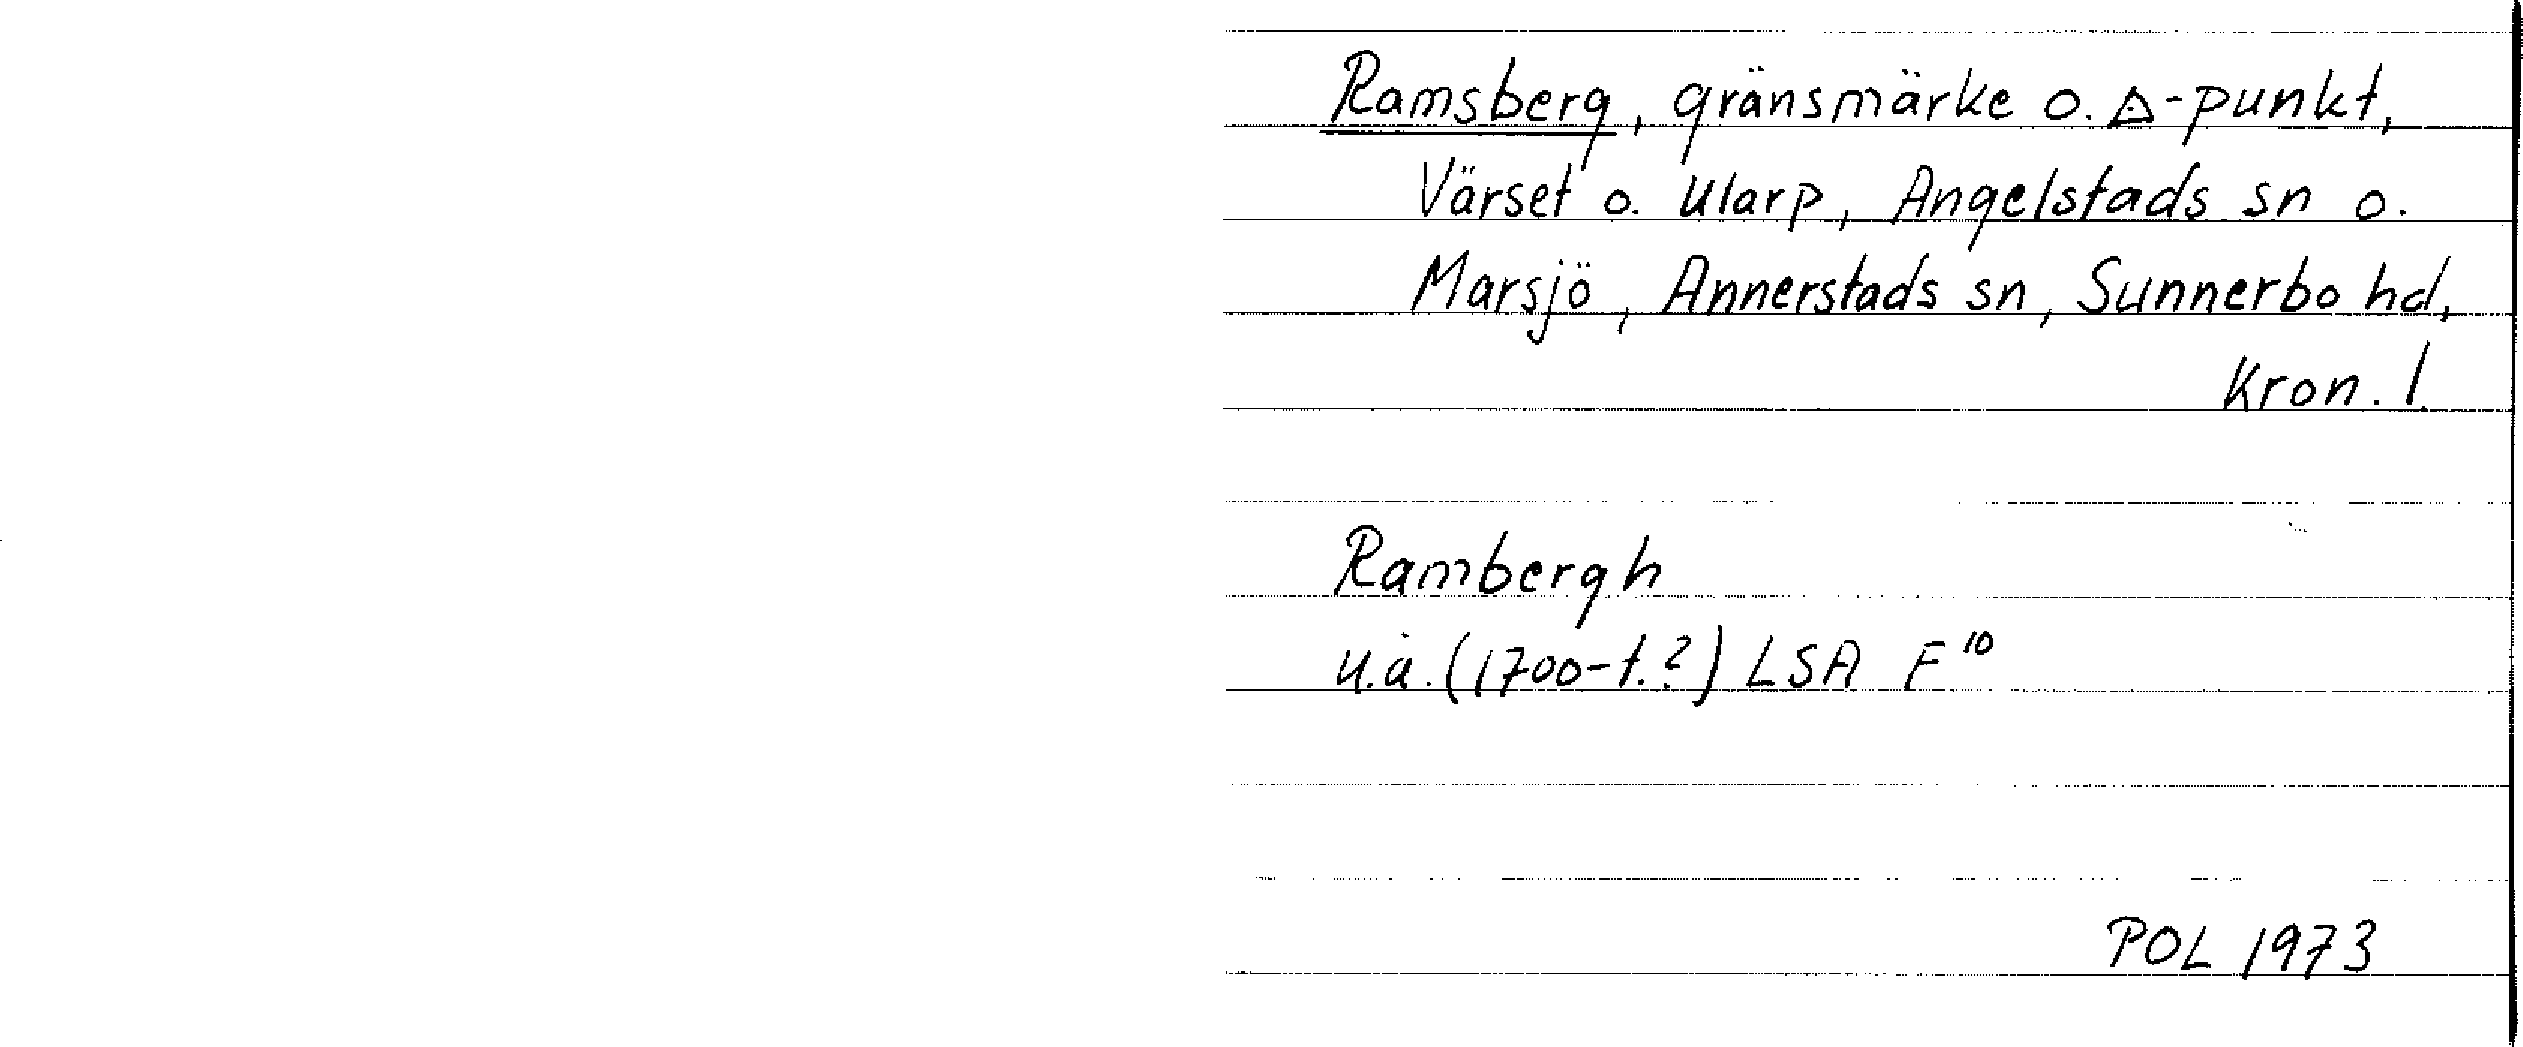 Ramsberg, gränsmärke o. △-punkt,
Värset o. Ularp, Angelstads sn o.
Marsjö, Annerstads sn, Sunnerbo hd,
Kron. l.
Rambergh
u.å. (1700-t.?) LSA F¹⁰
POL 1973